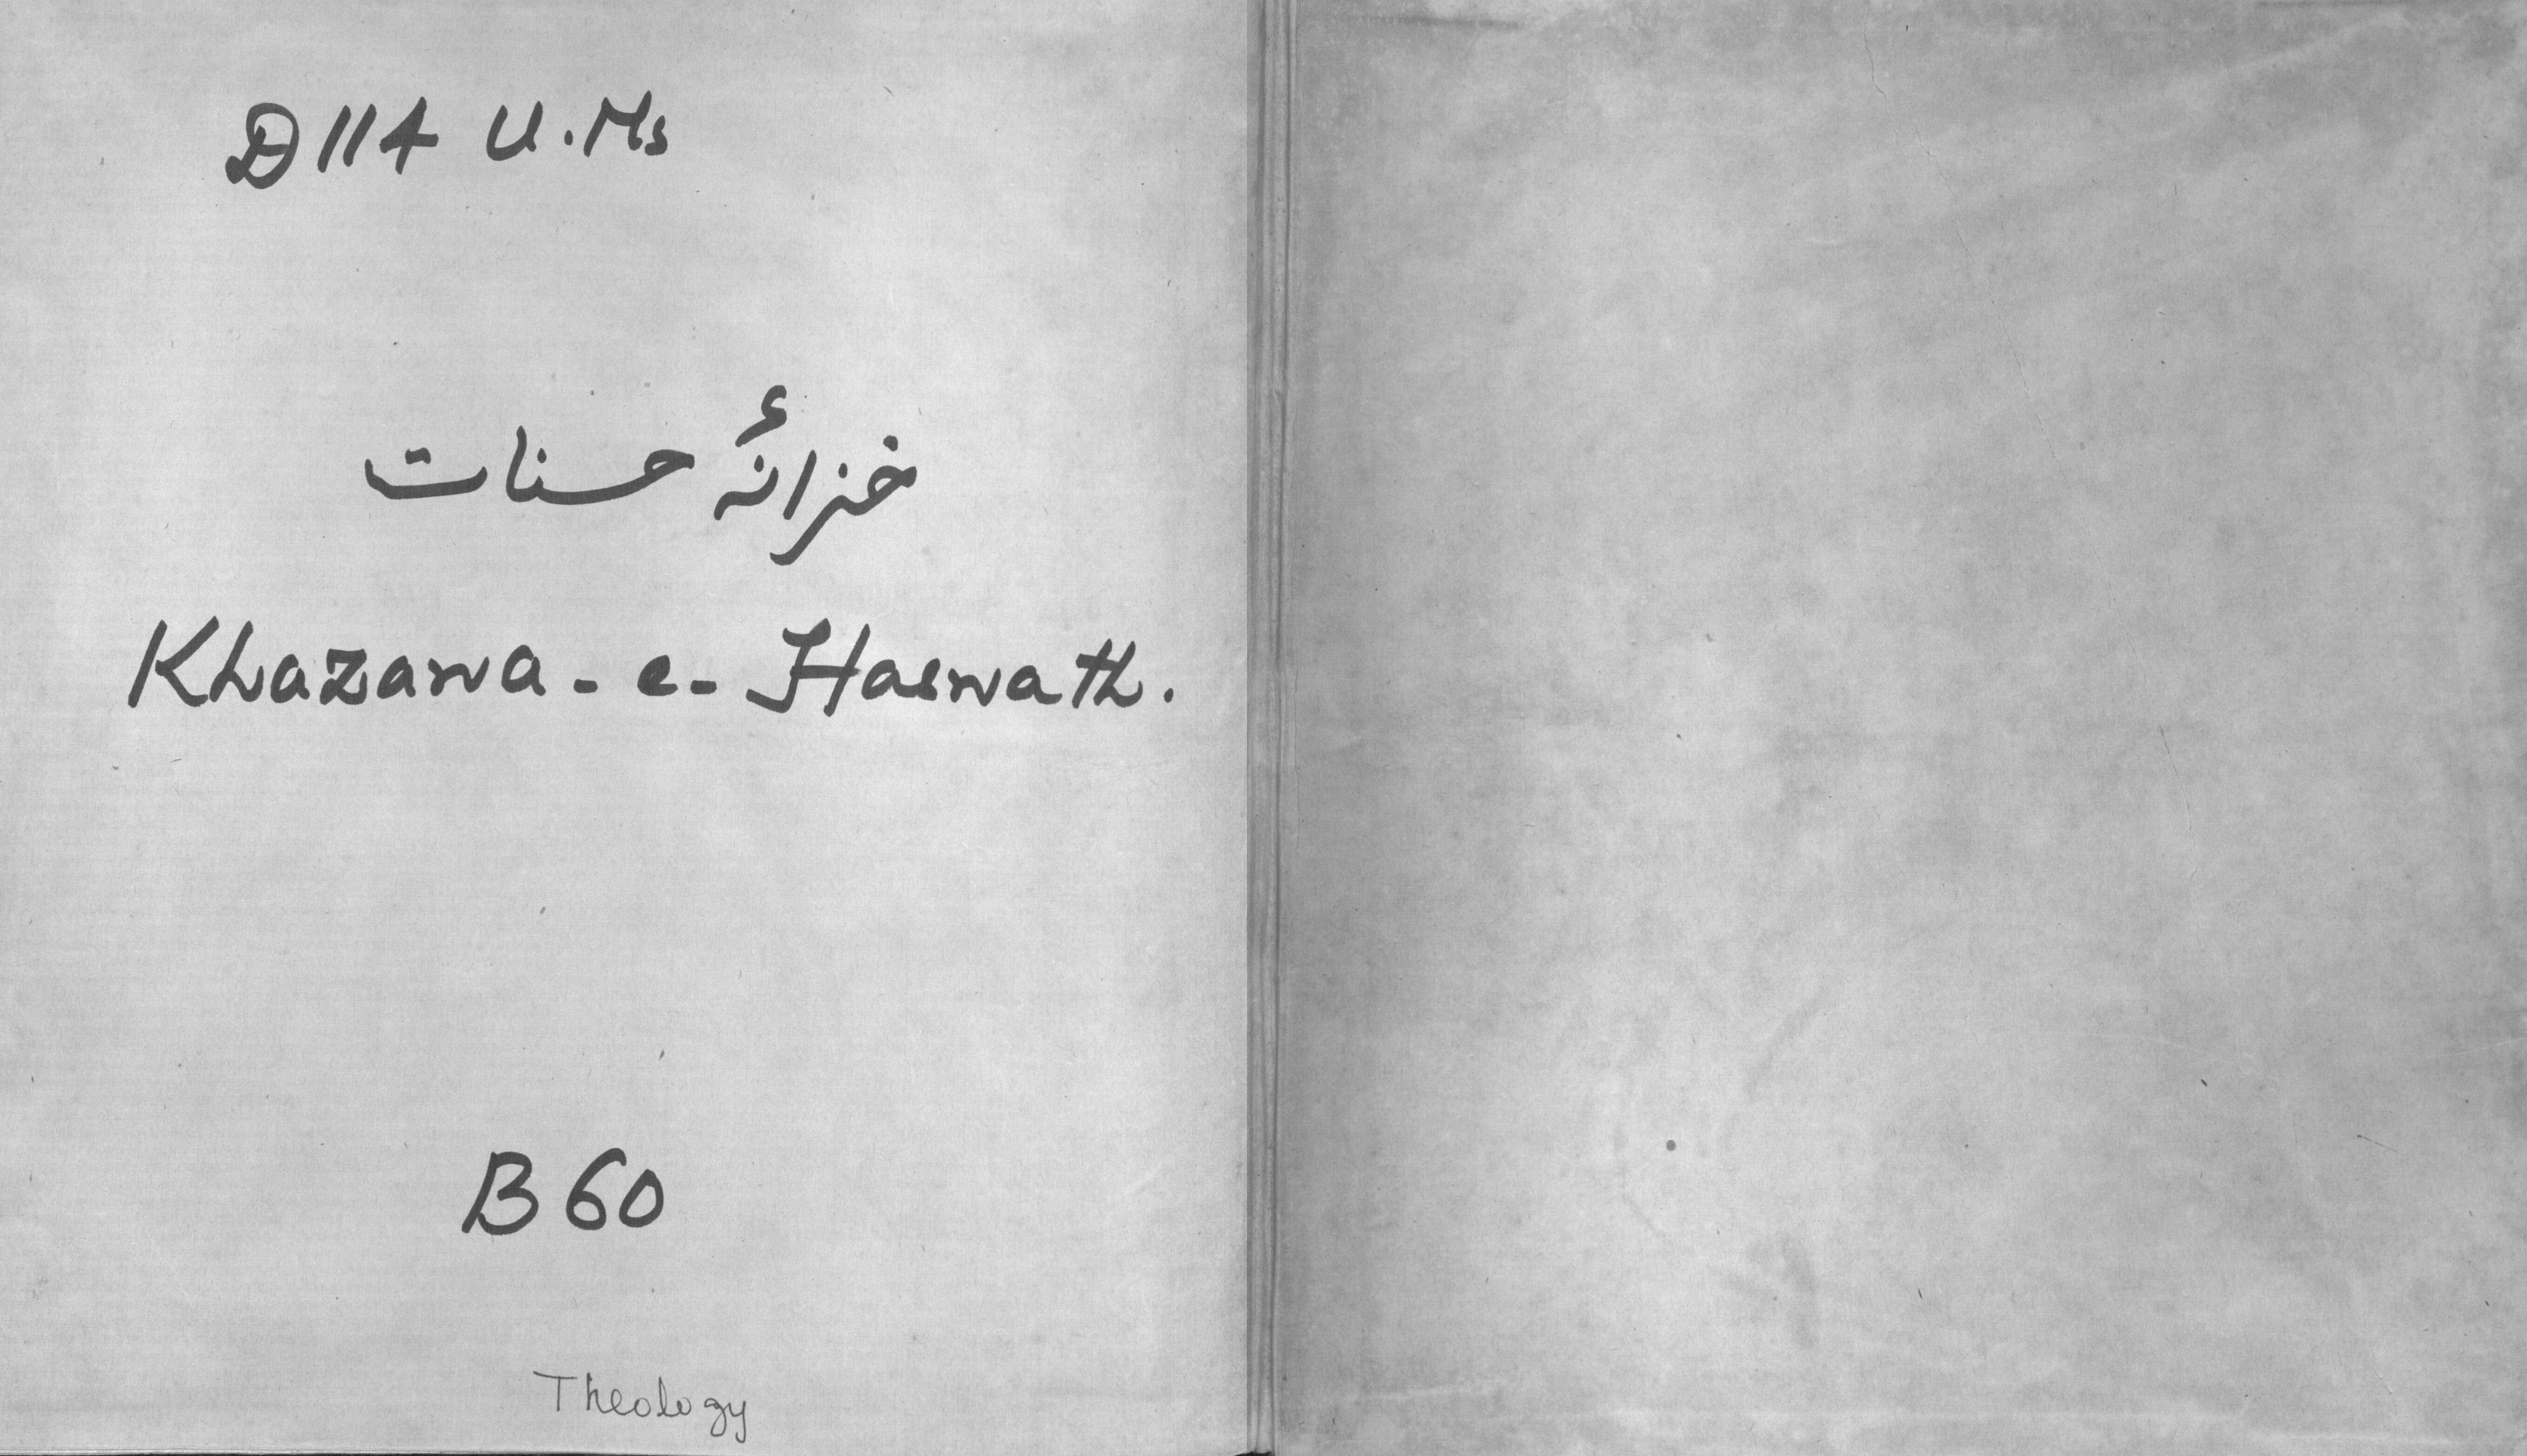 D 114 U.Ms
خزانۂ حسنات
Khazana-e-Hasnath.
B 60
Theology